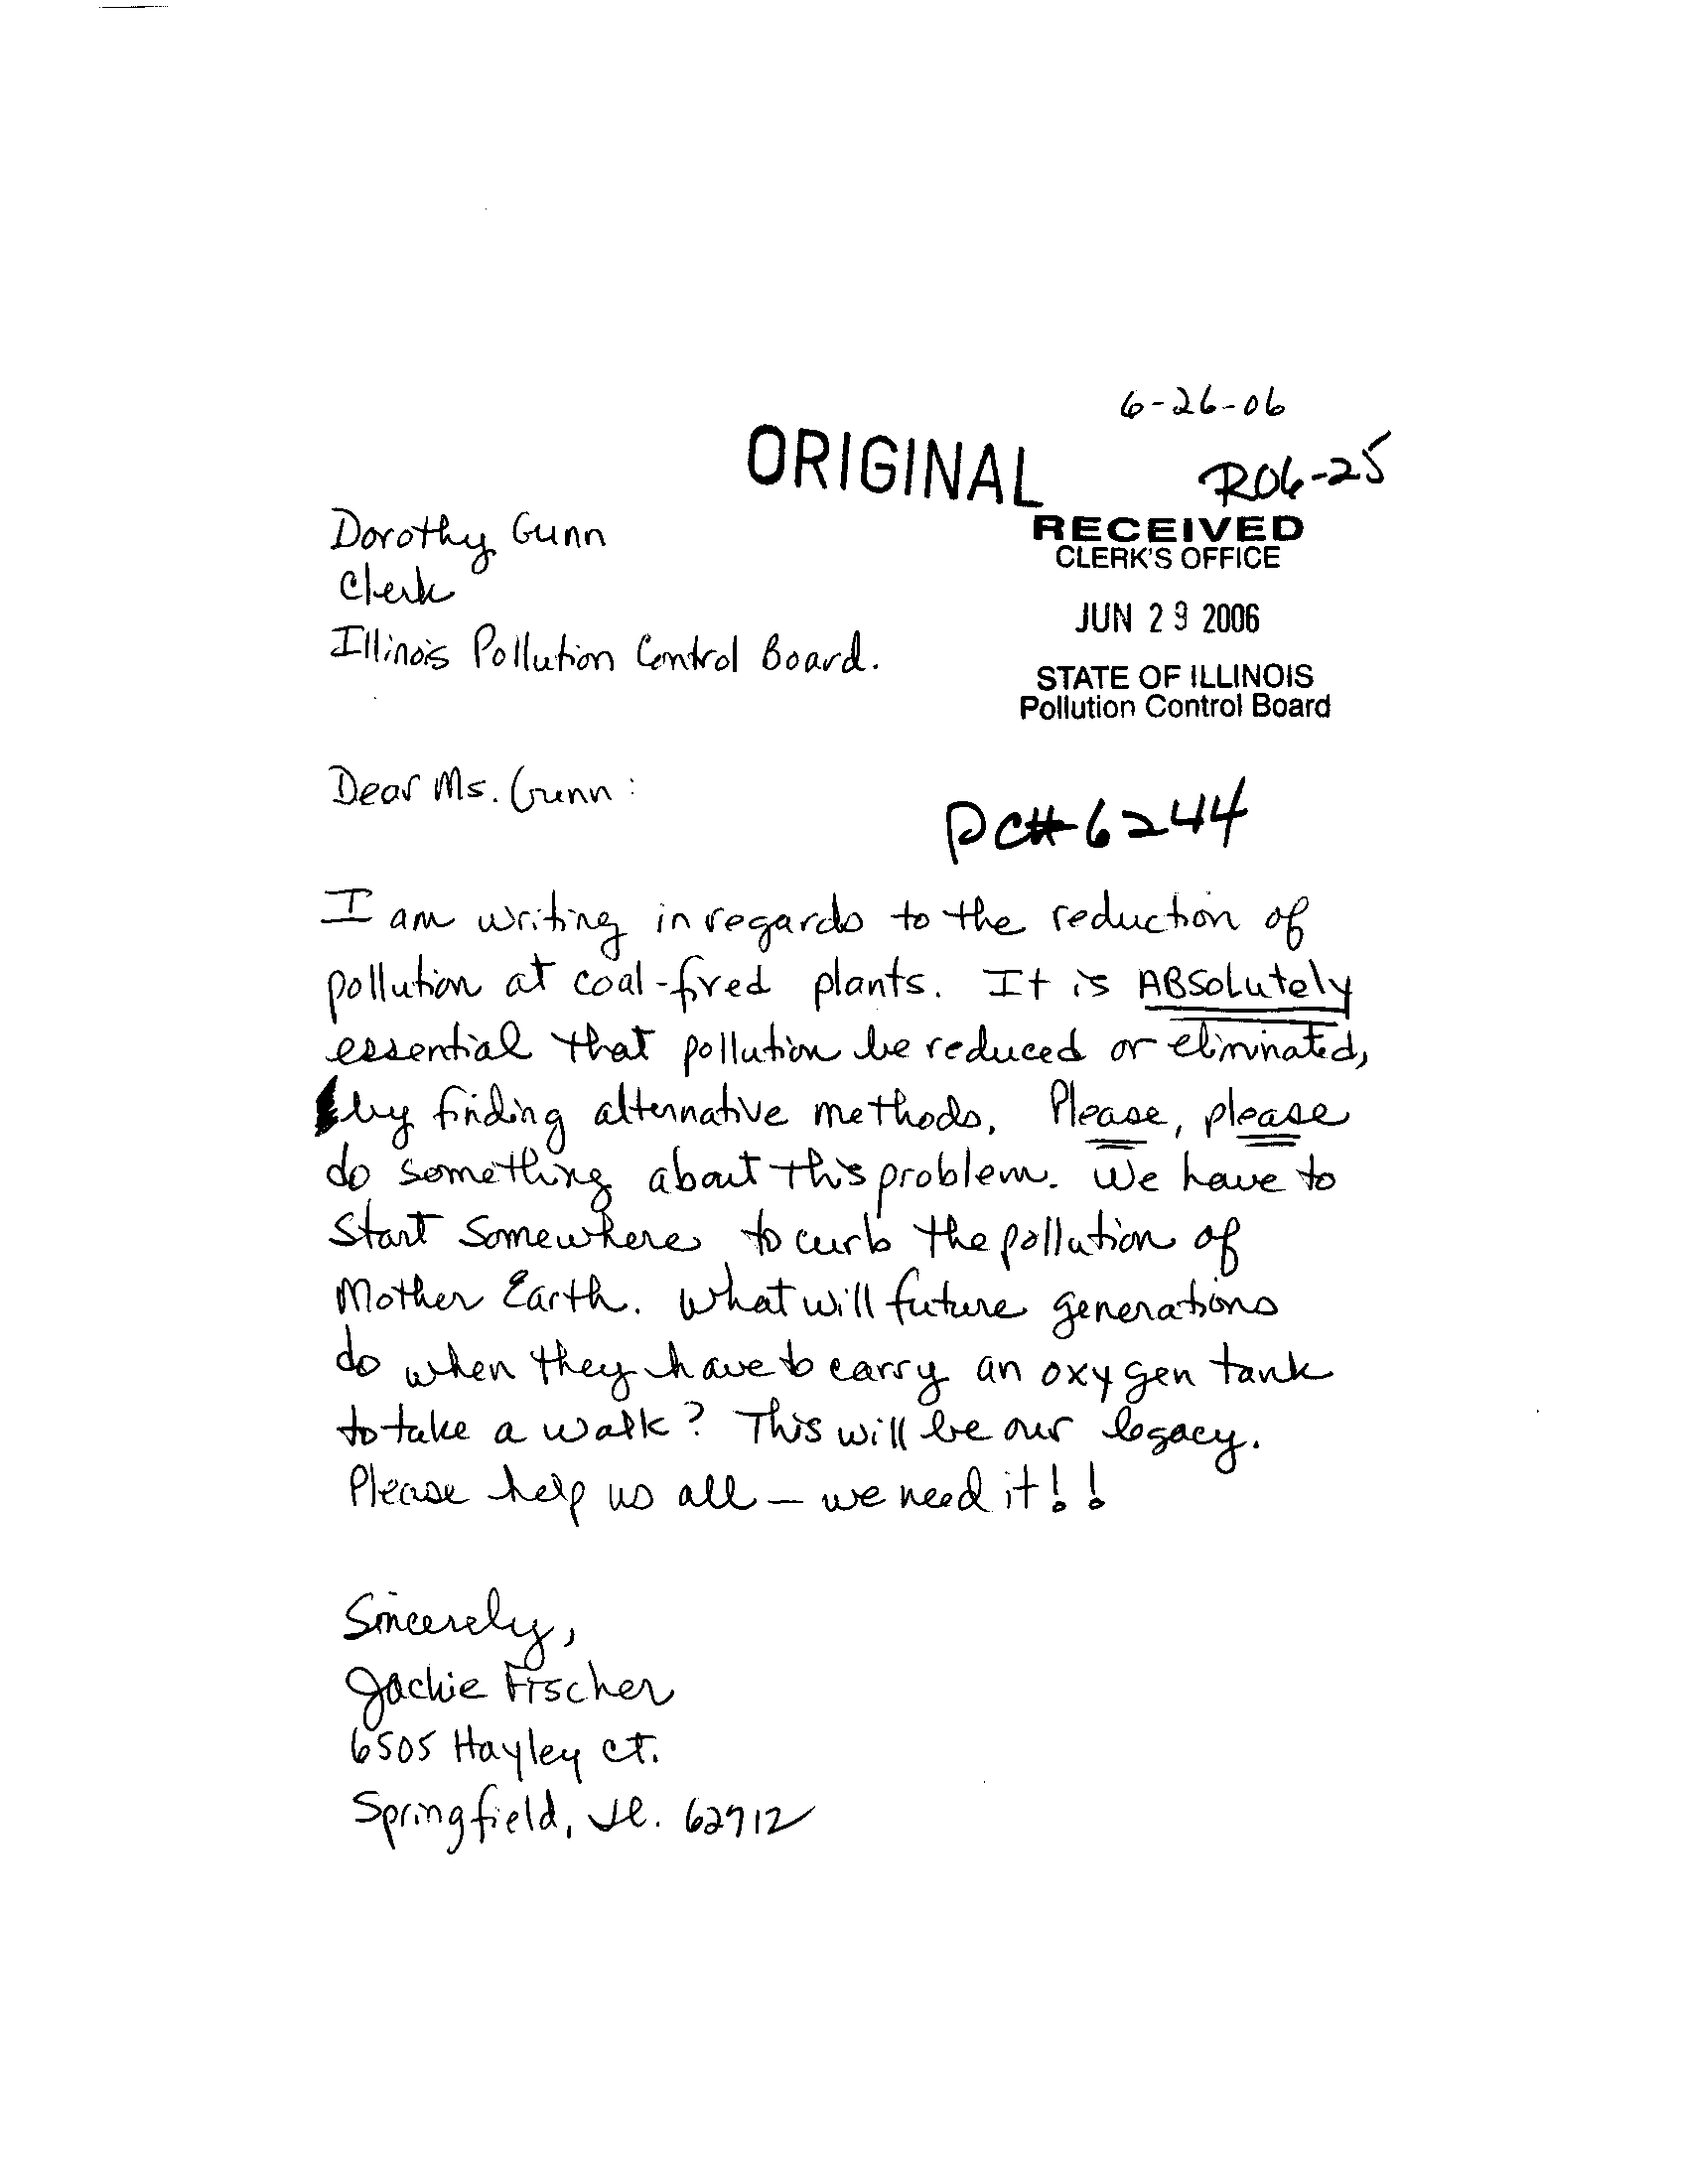 6-26-06
ORIGINAL
R06-25
RECEIVED
CLERK'S OFFICE
JUN 29 2006
STATE OF ILLINOIS
Pollution Control Board
Dorothy Gunn
Clerk
Illinois Pollution Control Board.
Dear Ms. Gunn:
PC# 6244
I am writing in regards to the reduction of
pollution at coal-fired plants. It is ABSOLUTELY
essential that pollution be reduced or eliminated,
by finding alternative methods. Please, please
do something about this problem. We have to
start somewhere to curb the pollution of
Mother Earth. What will future generations
do when they have to carry an oxygen tank
to take a walk? This will be our legacy.
Please help us all – we need it!!
Sincerely,
Jackie Fischer
6505 Hayley Ct.
Springfield, Il. 62712